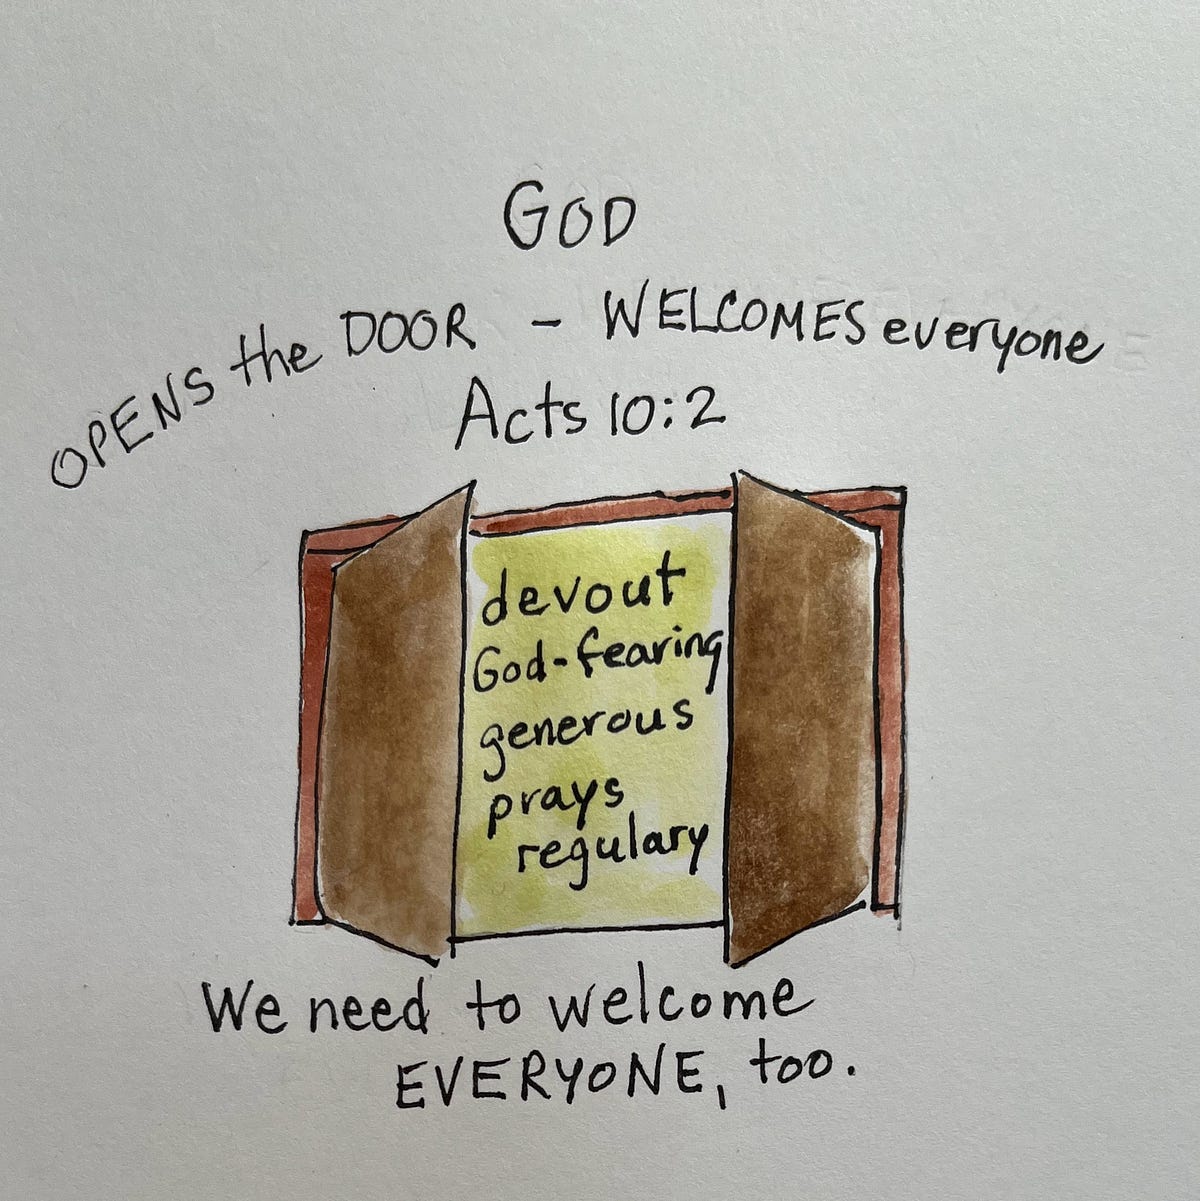 GOD
OPENS the DOOR - WELCOMES everyone
Acts 10:2
devout
God-fearing
generous
prays
regulary
We need to welcome
EVERYONE, too.